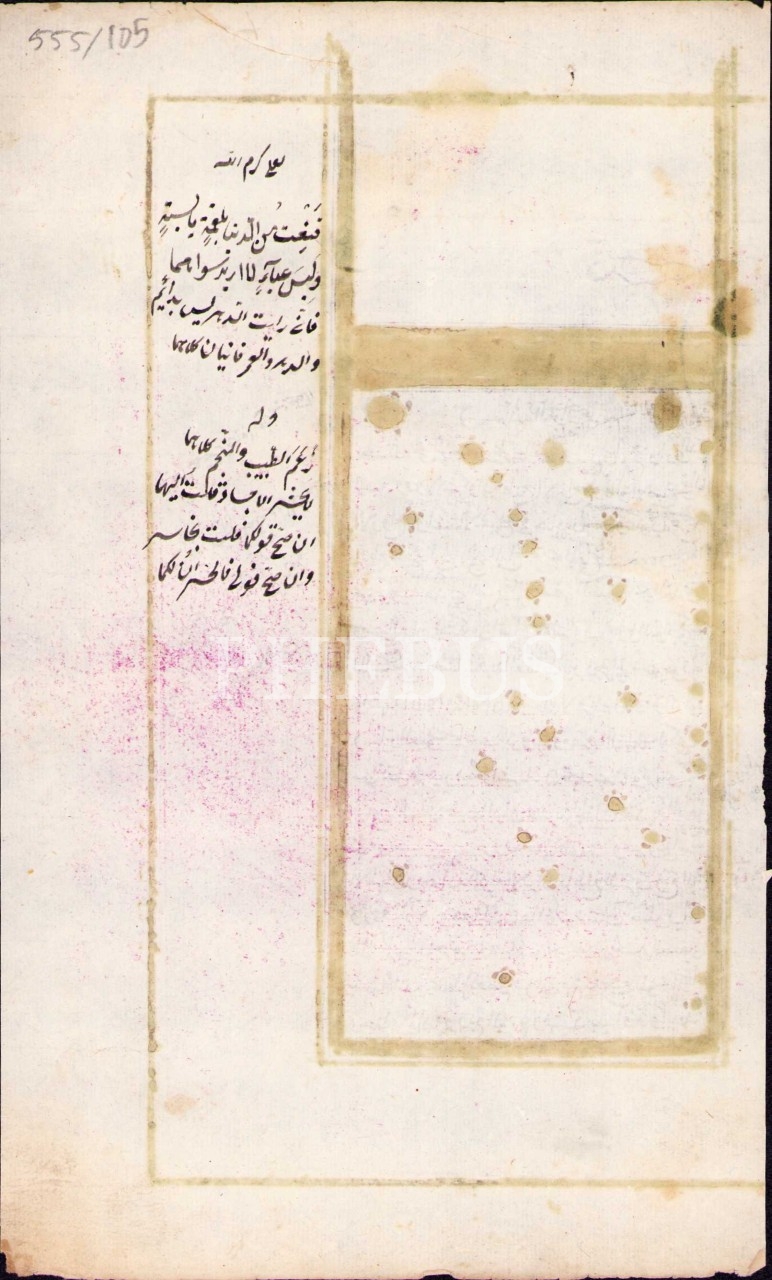 555/105
لعلي كرم الله
قَنِعْتُ مِن الدنيا بلقمةٍ يابسةٍ
ولبس عباءٍ لا اريد سواهما
فانّي رايت الدهر ليس بدائم
والدهر والعمر فانيان كلاهما
وله
زعم الطبيب والمنجم كلاهما
لا يحشر الاجساد قلت اليهما
ان صحّ قولكما فلست بخاسر
وان صحّ قولي فالخسران لكما
PHEBUS